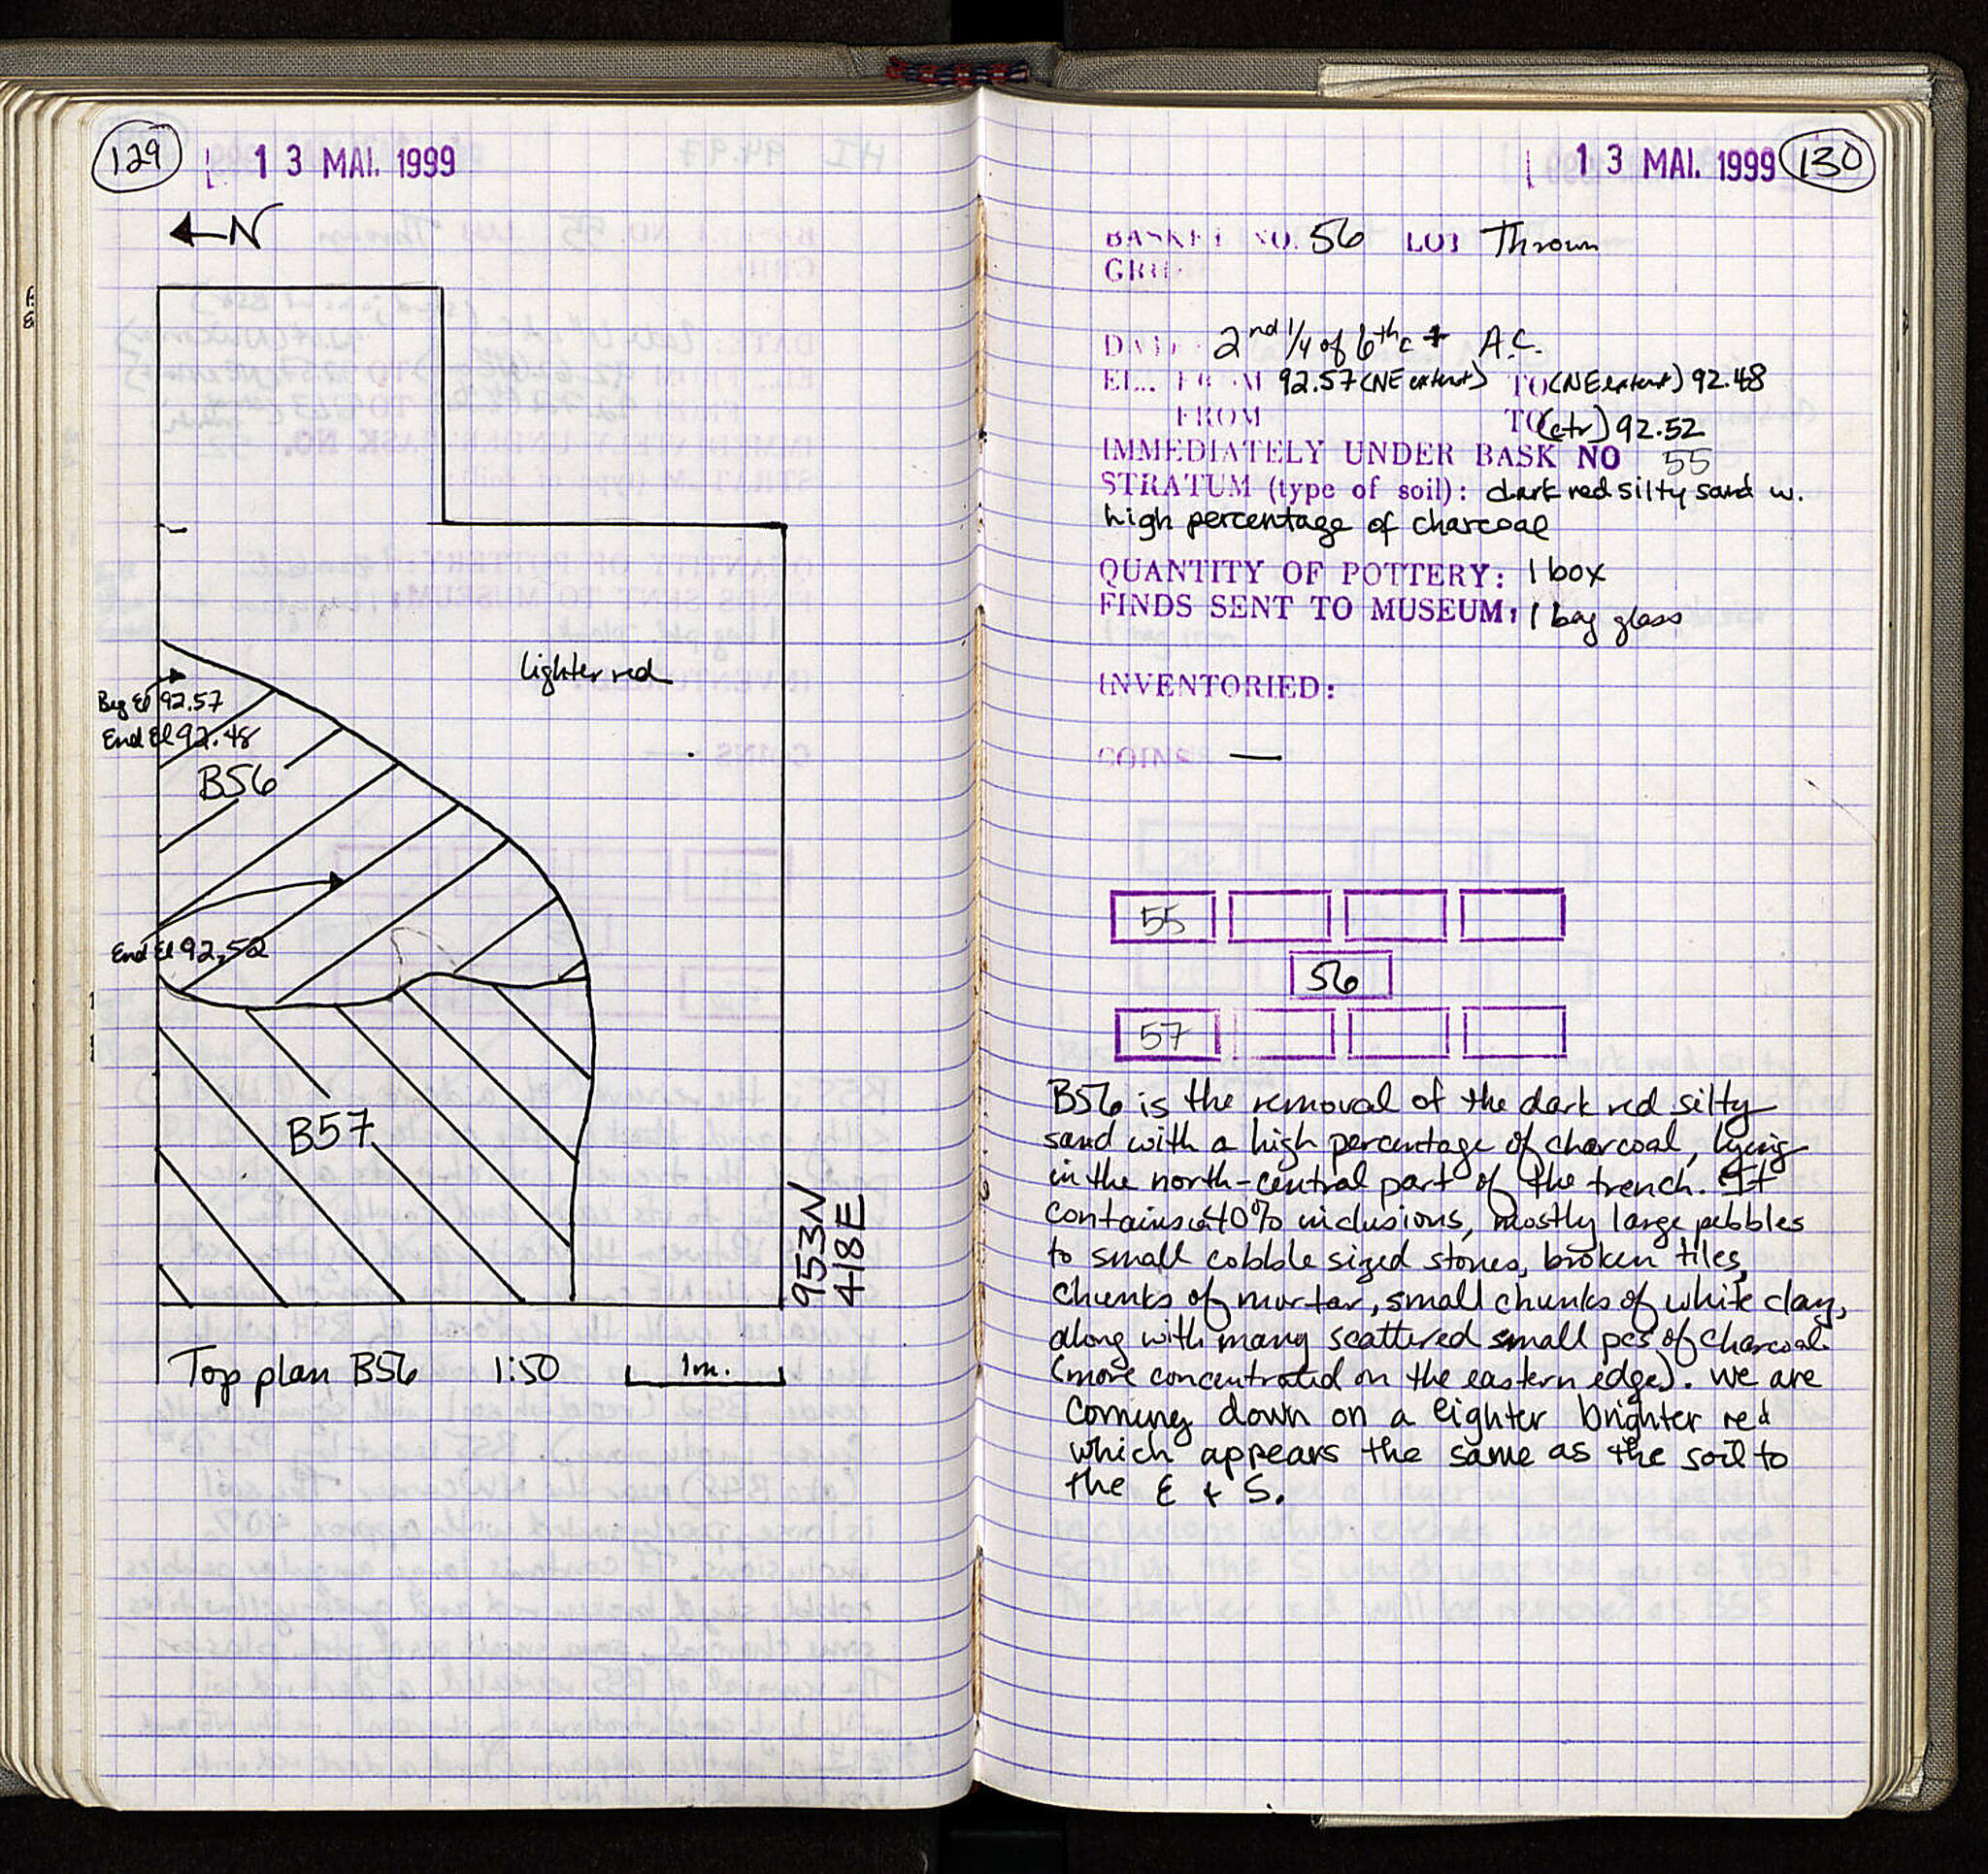 129
13 MAI. 1999
N
lighter red
Beg El 92.57
End El 92.48
B56
End El 92.52
B57
953N
418E
Top plan B56 1:50 1m.
13 MAI. 1999
130
BASKET NO. 56 LOT Thrown
GRID
DATE: 2nd 1/4 of 6th c + A.C.
EL. FROM 92.57 (NE extent) TO (NE extent) 92.48
FROM TO (ctr) 92.52
IMMEDIATELY UNDER BASK NO 55
STRATUM (type of soil): dark red silty sand w.
high percentage of charcoal
QUANTITY OF POTTERY: 1 box
FINDS SENT TO MUSEUM: 1 bag glass
INVENTORIED:
COINS —
55
56
57
B56 is the removal of the dark red silty
sand with a high percentage of charcoal, lying
in the north-central part of the trench. It
contains 40% inclusions, mostly large pebbles
to small cobble sized stones, broken tiles,
chunks of mortar, small chunks of white clay,
along with many scattered small pcs of charcoal
(more concentrated on the eastern edge). We are
coming down on a lighter brighter red
which appears the same as the soil to
the E & S.